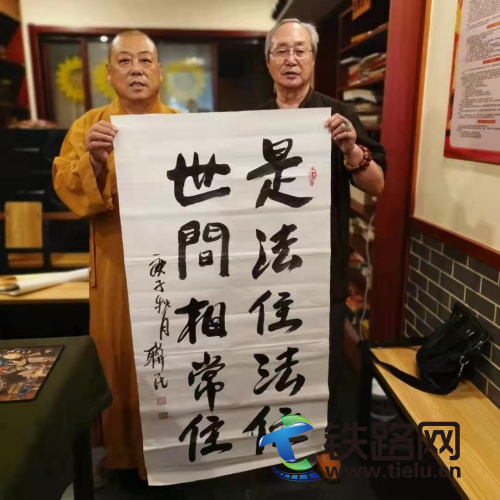 是法住法位
世間相常住
庚子秋月
铁路网
www.tielu.cn